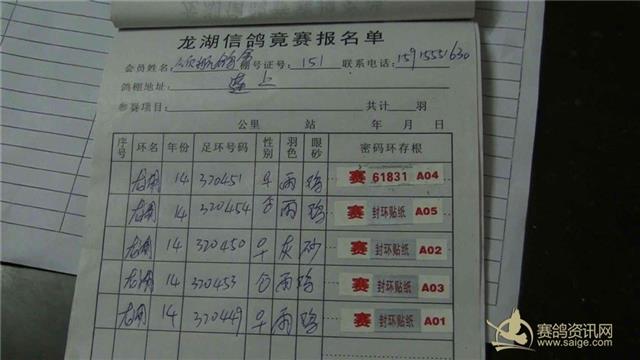 龙湖信鸽竟赛报名单
会员姓名: 棚号证号: 151 联系电话: 15915551630
鸽棚地址: 莲上
参赛项目: 共计 羽
公里 站 年 月 日
序号 环名 年份 足环号码 性别 羽色 眼砂 密码环存根
龙湖 14 320451 雨 鸡 赛 61831 A04
龙湖 14 320454 雨 鸡 赛 封环贴纸 A05
龙湖 14 320450 灰 砂 赛 封环贴纸 A02
龙湖 14 320453 雨 鸡 赛 封环贴纸 A03
龙湖 14 320449 雨 鸡 赛 封环贴纸 A01
赛鸽资讯网
www.saige.com